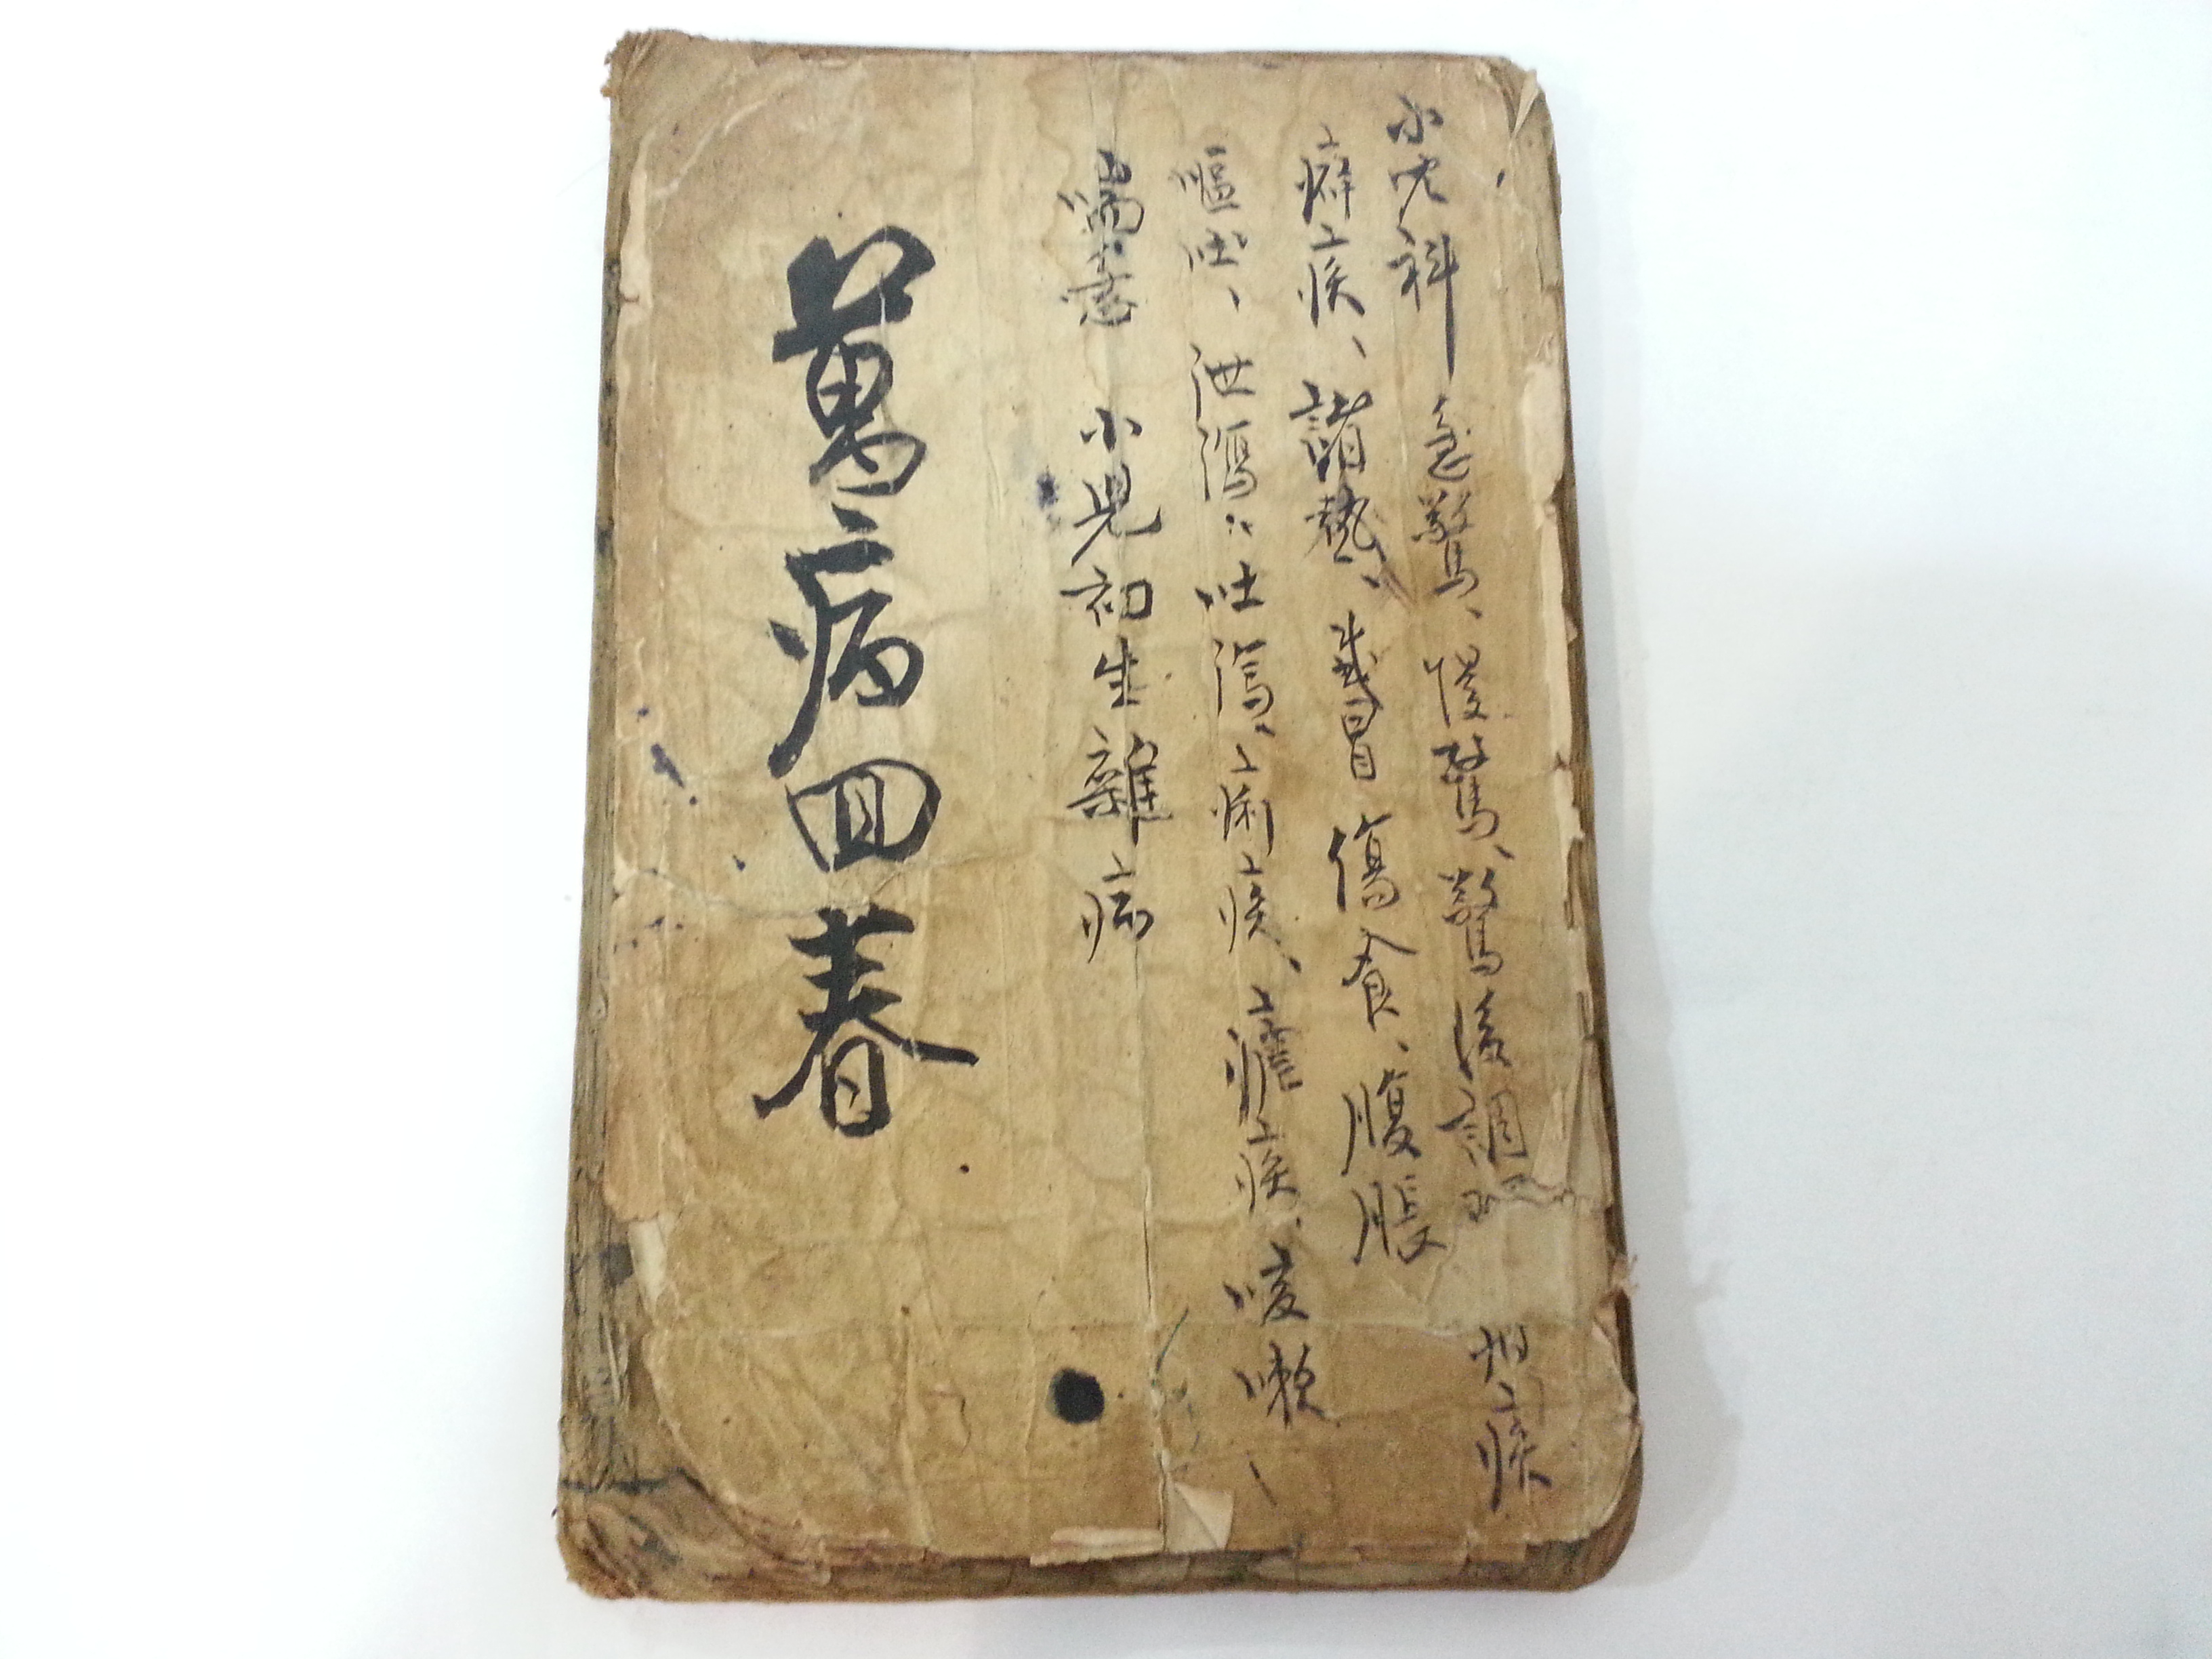 小児科 急驚、慢驚、驚後調理 疳疾
癖疾、諸熱、感冒 傷食、腹脹
嘔吐、泄瀉、吐瀉、痢疾、瘧疾、咳嗽、
喘 小兒初生雜病
萬病回春